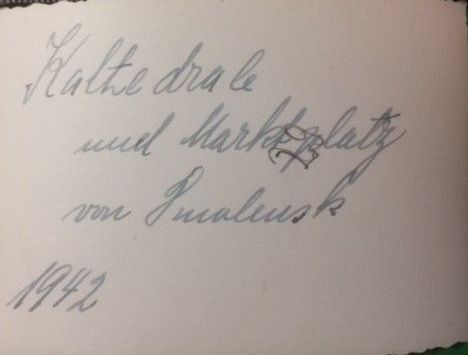 Kathedrale
und Marktplatz
von Smolensk
1942